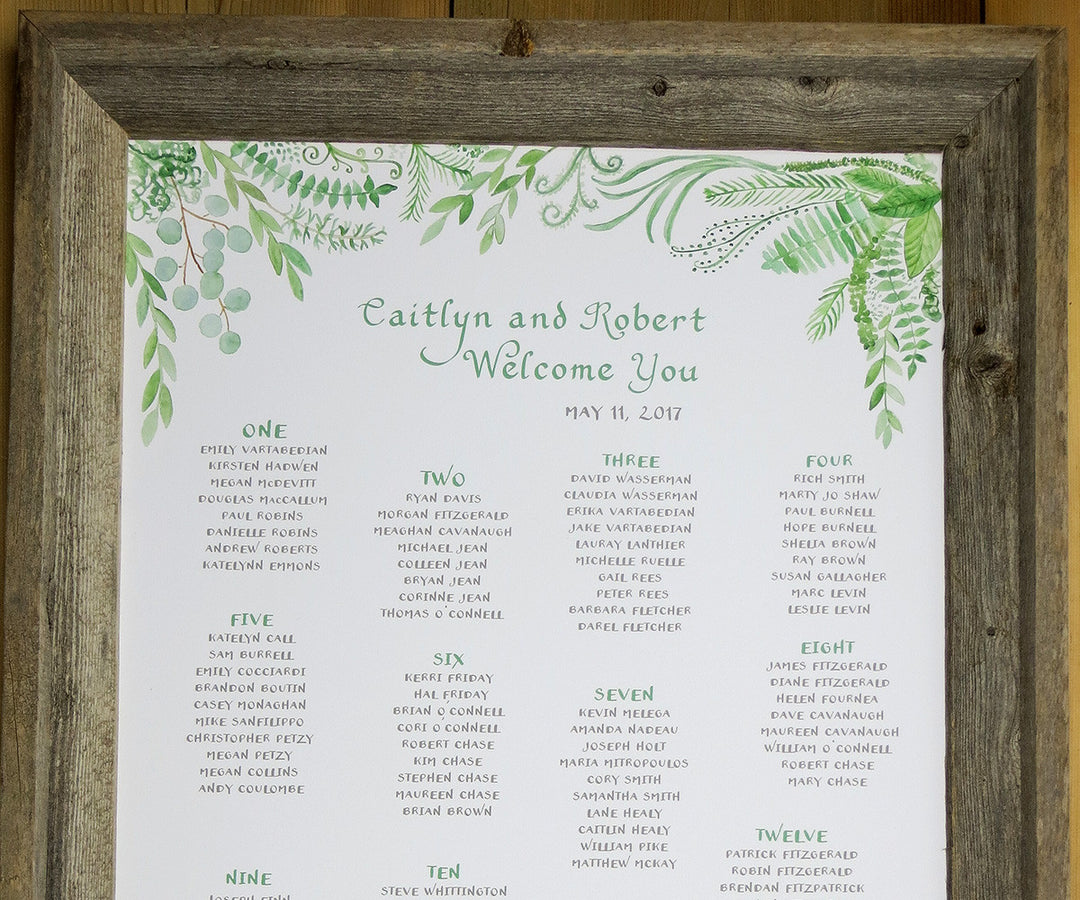 Caitlyn and Robert
Welcome You
MAY 11, 2017
ONE
EMILY VARTABEDIAN
KIRSTEN HADWEN
MEGAN McDEVITT
DOUGLAS MacCALLUM
PAUL ROBINS
DANIELLE ROBINS
ANDREW ROBERTS
KATELYNN EMMONS
TWO
RYAN DAVIS
MORGAN FITZGERALD
MEAGHAN CAVANAUGH
MICHAEL JEAN
COLLEEN JEAN
BRYAN JEAN
CORINNE JEAN
THOMAS O'CONNELL
THREE
DAVID WASSERMAN
CLAUDIA WASSERMAN
ERIKA VARTABEDIAN
JAKE VARTABEDIAN
LAURAY LANTHIER
MICHELLE RUELLE
GAIL REES
PETER REES
BARBARA FLETCHER
DAREL FLETCHER
FOUR
RICH SMITH
MARTY JO SHAW
PAUL BURNELL
HOPE BURNELL
SHELIA BROWN
RAY BROWN
SUSAN GALLAGHER
MARC LEVIN
LESLIE LEVIN
FIVE
KATELYN CALL
SAM BURRELL
EMILY COCCIARDI
BRANDON BOUTIN
CASEY MONAGHAN
MIKE SANFILIPPO
CHRISTOPHER PETZY
MEGAN PETZY
MEGAN COLLINS
ANDY COULOMBE
SIX
KERRI FRIDAY
HAL FRIDAY
BRIAN O'CONNELL
CORI O'CONNELL
ROBERT CHASE
KIM CHASE
STEPHEN CHASE
MAUREEN CHASE
BRIAN BROWN
SEVEN
KEVIN MELEGA
AMANDA NADEAU
JOSEPH HOLT
MARIA MITROPOULOS
CORY SMITH
SAMANTHA SMITH
LANE HEALY
CAITLIN HEALY
WILLIAM PIKE
MATTHEW MCKAY
EIGHT
JAMES FITZGERALD
DIANE FITZGERALD
HELEN FOURNEA
DAVE CAVANAUGH
MAUREEN CAVANAUGH
WILLIAM O'CONNELL
ROBERT CHASE
MARY CHASE
NINE
TEN
STEVE WHITTINGTON
TWELVE
PATRICK FITZGERALD
ROBIN FITZGERALD
BRENDAN FITZPATRICK